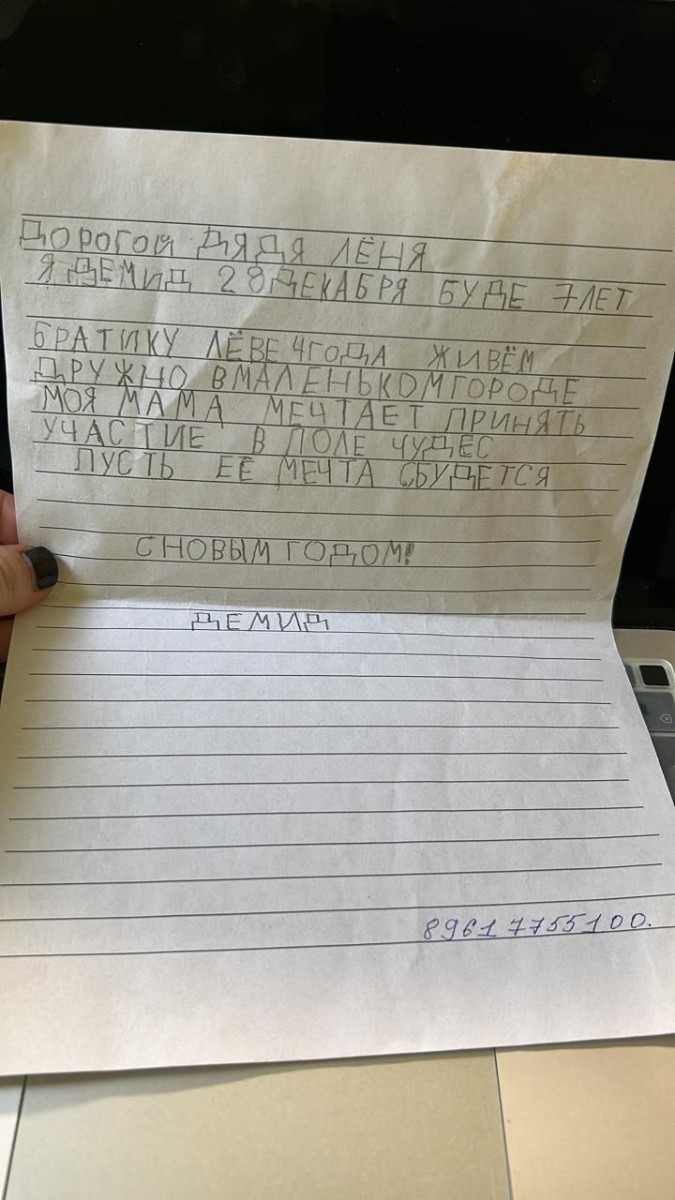 ДОРОГОЙ ДЯДЯ ЛЁНЯ
Я ДЕМИД 28 ДЕКАБРЯ БУДЕ 7 ЛЕТ
БРАТИКУ ЛЁВЕ 4 ГОДА ЖИВЁМ
ДРУЖНО В МАЛЕНЬКОМ ГОРОДЕ
МОЯ МАМА МЕЧТАЕТ ПРИНЯТЬ
УЧАСТИЕ В ПОЛЕ ЧУДЕС
ПУСТЬ ЕЁ МЕЧТА СБУДЕТСЯ
С НОВЫМ ГОДОМ!
ДЕМИД
89617755100.